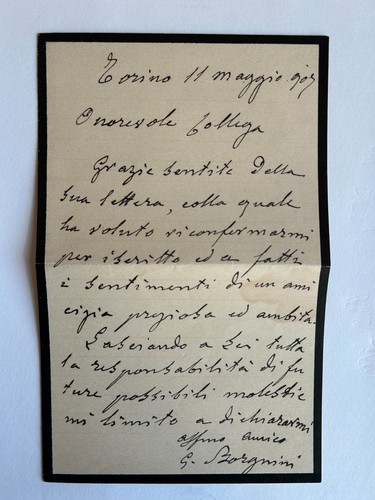 Torino 11 maggio 907
Onorevole Collega
Grazie sentite della
sua lettera, colla quale
ha voluto riconfermarmi
per iscritto ed a fatti
i sentimenti di un ami
cizia pregiosa ed ambita.
Lasciando a Lei tutta
la responsabilità di fu
ture possibili molestie
mi limito a dichiararmi
affmo amico
G. Borgnini